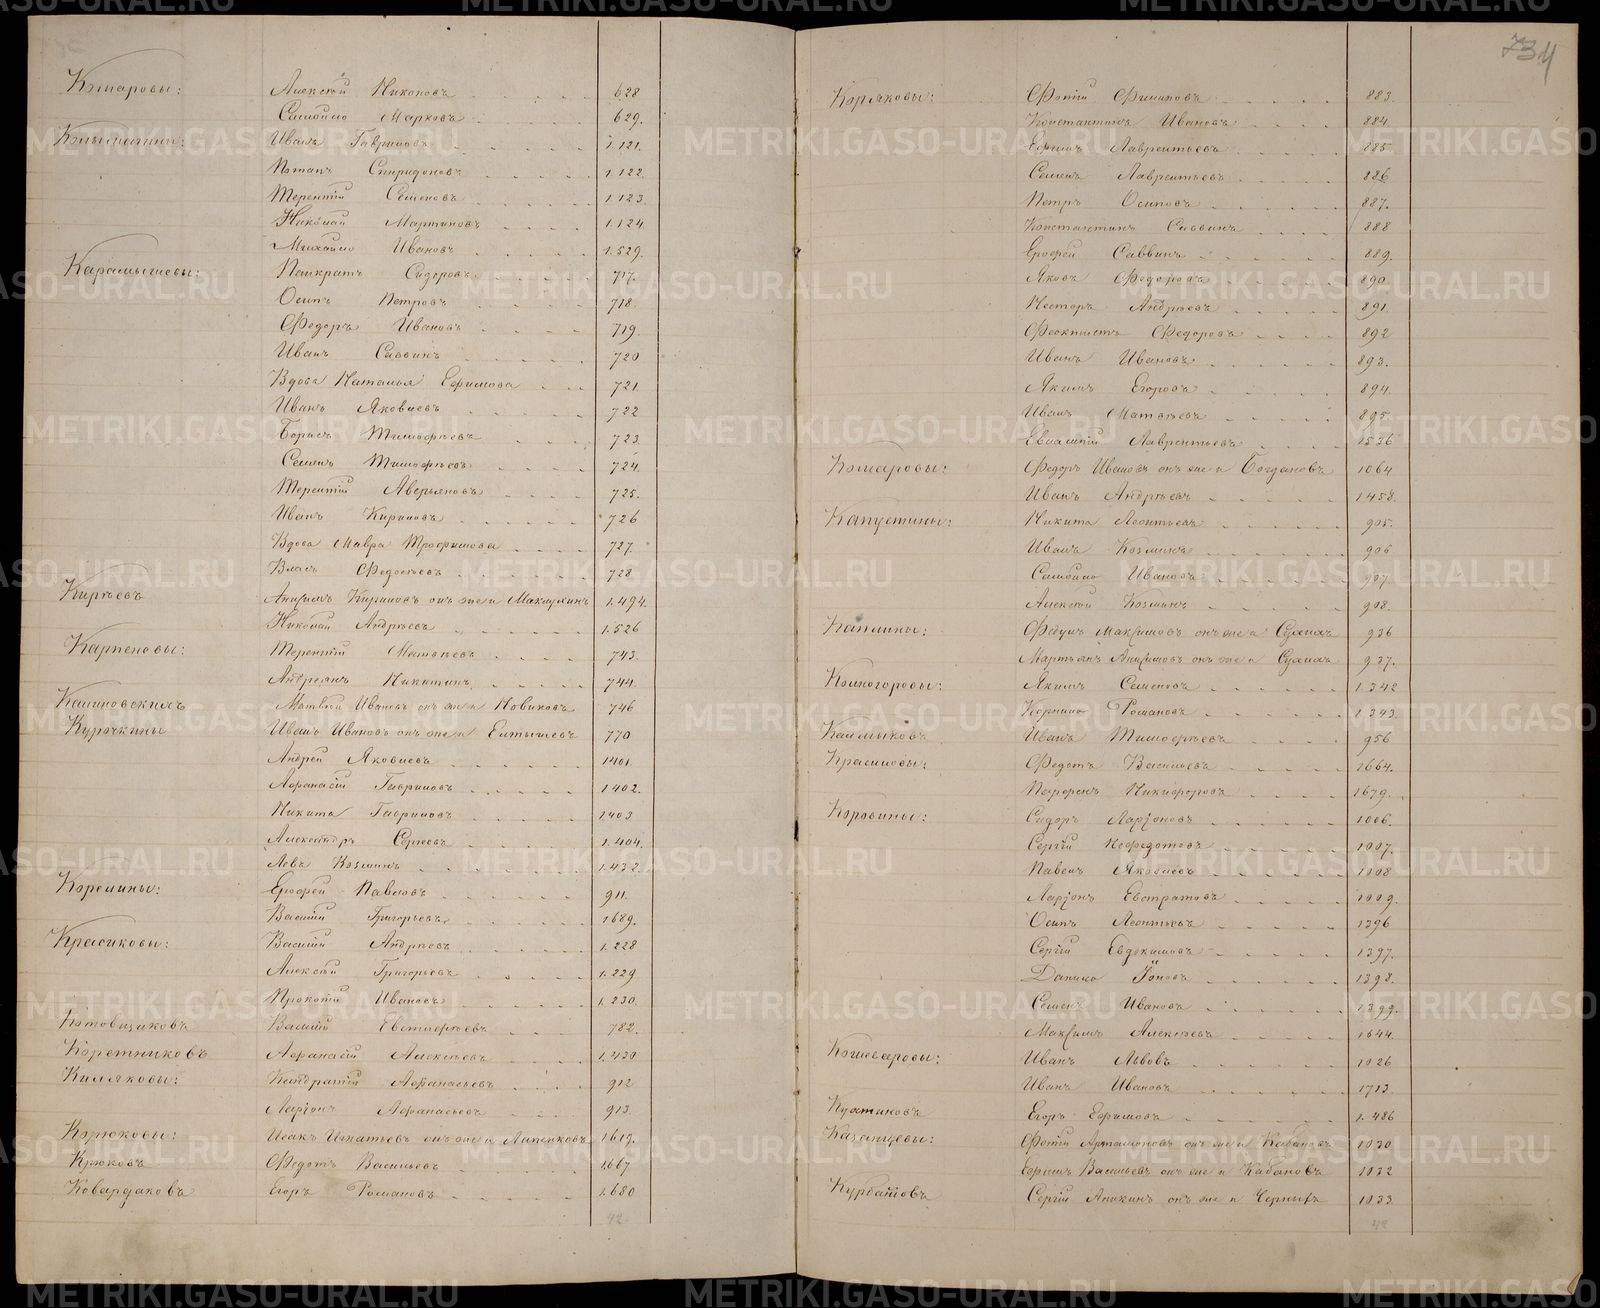 Комаровы: Алексѣй Никоновъ 628
Самойло Марковъ 629.
Иванъ Гавриловъ 1.121.
Потапъ Спиридоновъ 1.122.
Терентій Семеновъ 1.123.
Николай Мартиновъ 1.124.
Михайло Ивановъ 1.529.
Карамышевы: Панкратъ Сидоровъ 717.
Осипъ Петровъ 718.
Ѳедоръ Ивановъ 719.
Иванъ Саввинъ 720
Вдова Наталья Ефимова 721.
Иванъ Яковлевъ 722
Борисъ Тимофѣевъ 723.
Семенъ Тимофѣевъ 724.
Терентій Аверьяновъ 725.
Иванъ Кириловъ 726
Вдова Мавра Трофимова 727.
Власъ Федосѣевъ 728
Кирѣевъ Анисимъ Кириловъ онъ же и Макурхинъ 1.494.
Николай Андрѣевъ 1.526
Карпеновы: Терентій Матвѣевъ 743.
Андреянъ Никитинъ 744.
Калиновскихъ Матвѣй Ивановъ онъ же и Новиковъ 746
Курочкины Иванъ Ивановъ онъ же и Елтышевъ 770
Андрей Яковлевъ 1401.
Афанасій Гавриловъ 1402.
Никита Гавриловъ 1403
Александръ Сергѣевъ 1.404.
Левъ Козминъ 1.432.
Корелины: Ерофей Павловъ 911.
Василій Григорьевъ 1689.
Красиковы: Василій Андрѣевъ 1.228
Алексѣй Григорьевъ 1.229
Прокопій Ивановъ 1.230.
Котовщиковъ Василій Евстифѣевъ 782.
Коретниковъ Афанасій Алексѣевъ 1.430
Киляковы: Кандратій Афанасьевъ 912
Ларіонъ Афанасьевъ 913.
Корюковы: Исакъ Игнатьевъ онъ же и Лапенковъ 1619.
Крюковъ Ѳедотъ Васильевъ 1.667
Ковардаковъ Егоръ Романовъ 1.680
42
734
Коряковы: Фотій Филиповъ 883.
Константинъ Ивановъ 884.
Ефимъ Лаврентьевъ 885
Семенъ Лаврентьевъ 886
Петръ Осиповъ 887.
Константинъ Саввинъ 888
Ерофей Саввинъ 889.
Яковъ Ѳедоровъ 890
Несторъ Андрѣевъ 891.
Феоктистъ Федоровъ 892
Иванъ Ивановъ 893.
Якимъ Егоровъ 894.
Иванъ Матвѣевъ 895.
Евлампій Лаврентьевъ 1536
Комаровы: Федоръ Ивановъ онъ же и Богдановъ 1064
Иванъ Андрѣевъ 1458.
Капустины: Никита Леонтьевъ 905.
Иванъ Козминъ 906
Самойло Ивановъ 907.
Алексѣй Козминъ 908.
Каплины: Федулъ Максимовъ онъ же и Сухихъ 936
Мартьянъ Анисимовъ онъ же и Сухихъ 937.
Комогоровы: Якимъ Семеновъ 1.342
Корнило Романовъ 1.343.
Калмыковъ Иванъ Тимофѣевъ 956
Красиловы: Ѳедотъ Васильевъ 1664.
Парфенъ Никифоровъ 1679.
Коровины: Сидоръ Ларіоновъ 1006.
Сергій Нефедотовъ 1007.
Павелъ Яковлевъ 1008
Ларіонъ Евстратовъ 1009.
Осипъ Леонтьевъ 1396
Сергій Евдокимовъ 1397.
Данило Іоновъ 1398.
Семенъ Ивановъ 1399.
Максимъ Алексѣевъ 1644.
Кошеваровы: Иванъ Львовъ 1026
Иванъ Ивановъ 1713.
Егоръ Ефимовъ 1.486
Казанцевы: Фотій Артамоновъ онъ же и Кабановъ 1030
Ефимъ Васильевъ онъ же и Кабановъ 1032
Курбатовъ Сергій Аникинъ онъ же и Черныхъ 1033
42